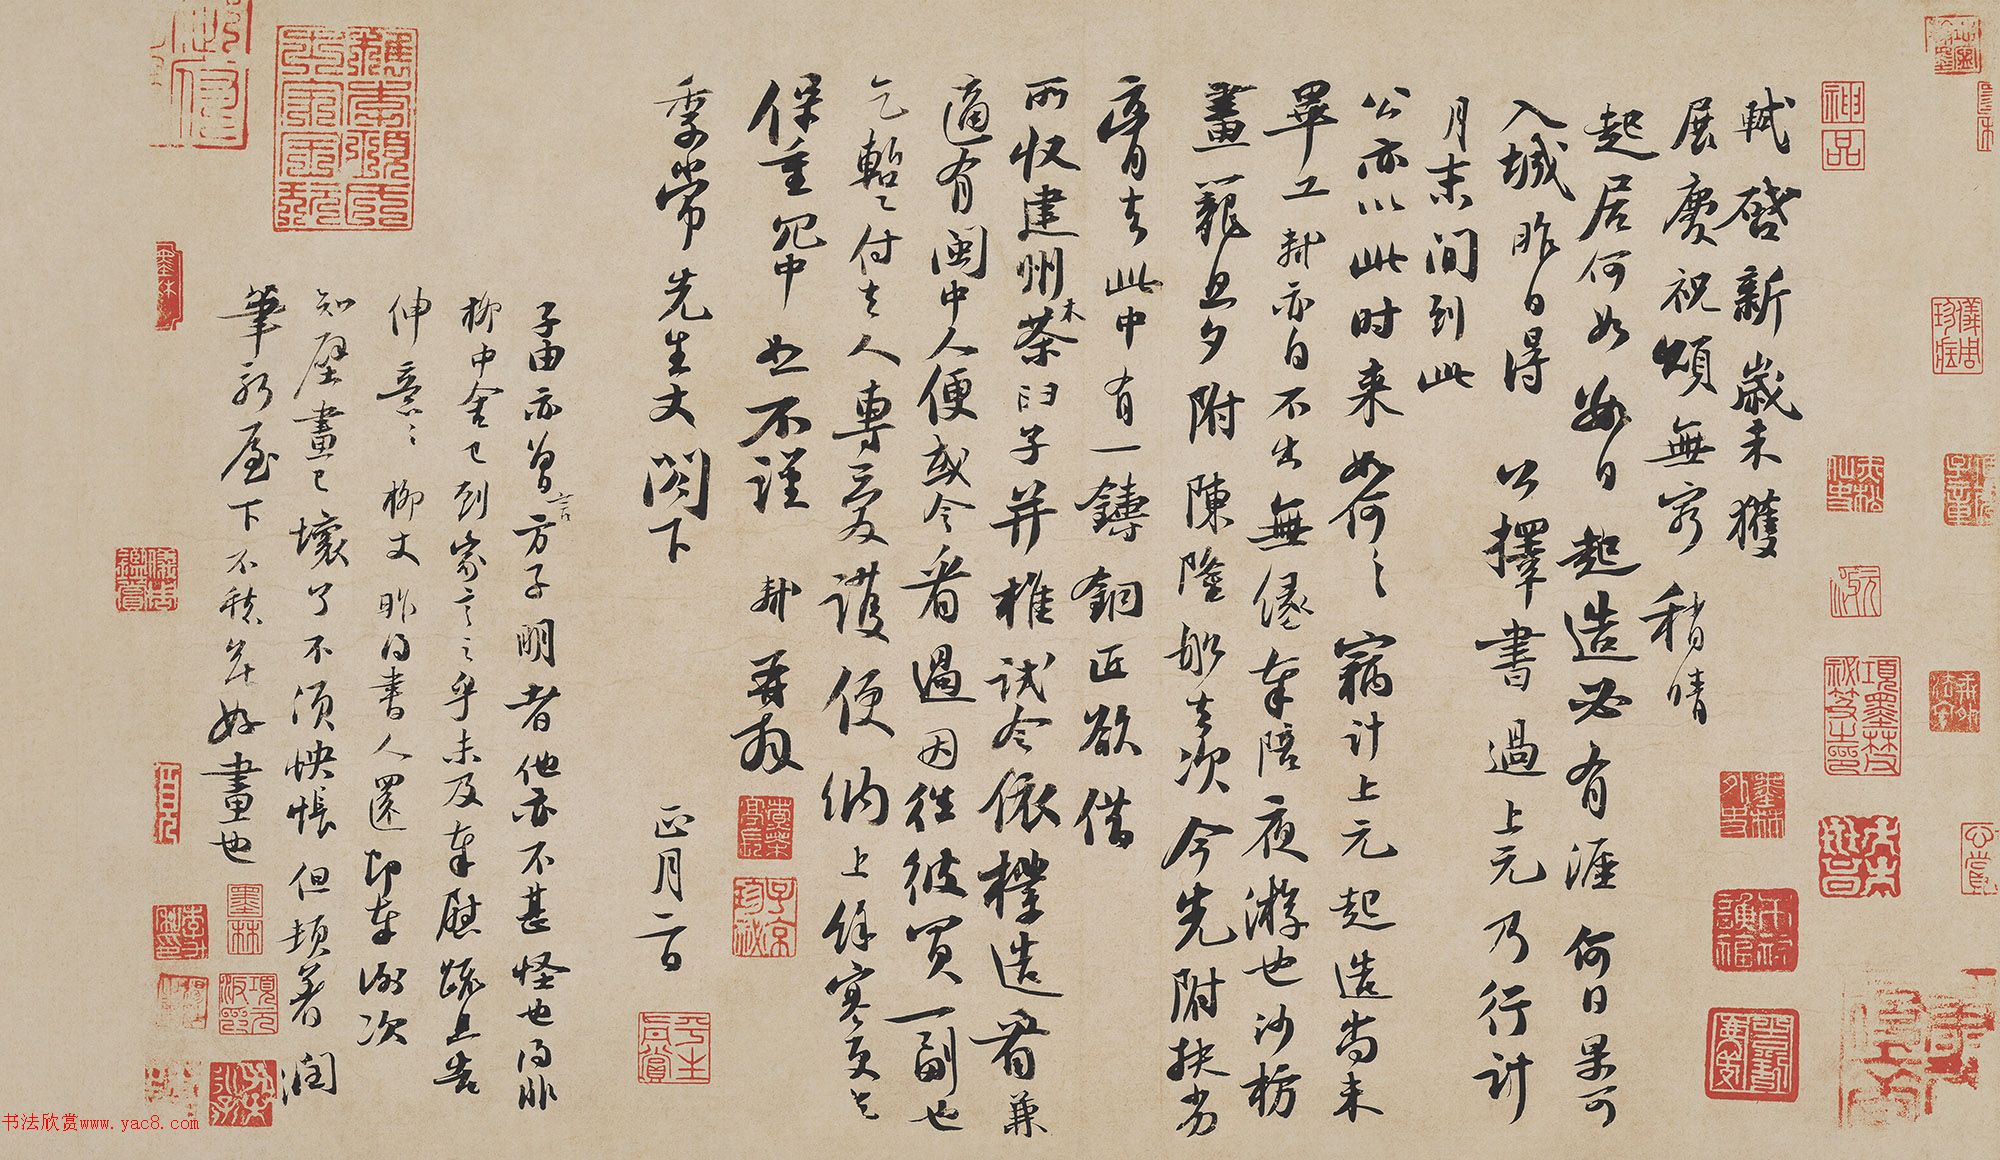 軾啓新歲未獲
展慶祝頌無窮稍晴
起居何如數日起造必有涯何日果可
入城昨日得公擇書過上元乃行計
月末間到此
公亦以此時來如何〻竊計上元起造尚未
畢工軾亦自不出無緣奉陪夜遊也沙枋
畫籠旦夕附陳隆船去次今先附扶劣
膏去此中有一鑄銅匠欲借
所收建州木茶臼子并椎試令依樣造看兼
適有閩中人便或令看過因往彼買一副也
乞暫〻付去人專愛護便納上餘寒更乞
保重冗中恕不謹軾再拜
季常先生丈閣下正月二日
子由亦曾言方子明者他亦不甚怪也得非
柳中舍已到家言之乎未及奉慰疏且告
伸意〻柳丈昨得書人還即奉謝次
知壁畫已壞了不須怏悵但頓著潤
筆新屋下不愁無好畫也
神品
項墨林
項元汴印
子京珍秘
平生真賞
書法欣賞www.yac8.com